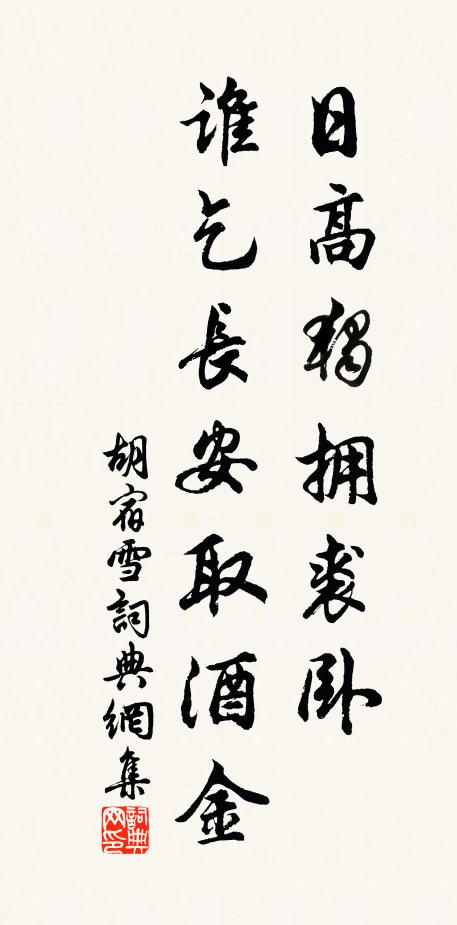 日高獨拥裘卧
誰乞長安取酒金
胡宿雪詞典網集
詞典网印